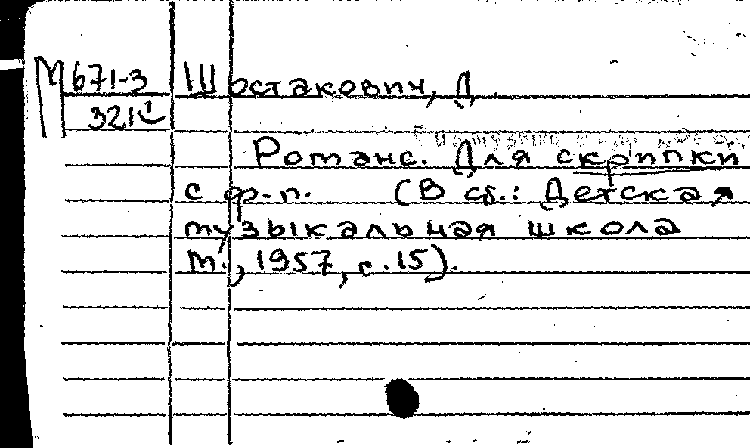 М 671-3 Шостакович, Д.
321
Романс. Для скрипки
с ф-п. (В сб.: Детская
музыкальная школа
М., 1957, с. 15).